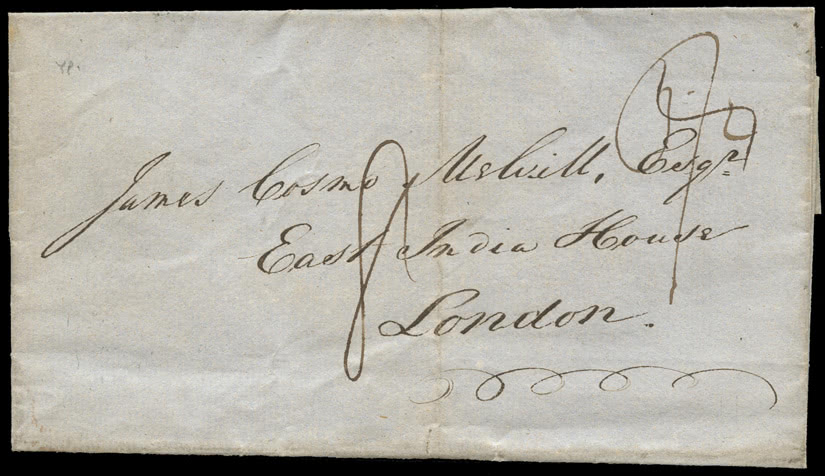 James Cosmo Melvill, Esqr.
East India House
London.